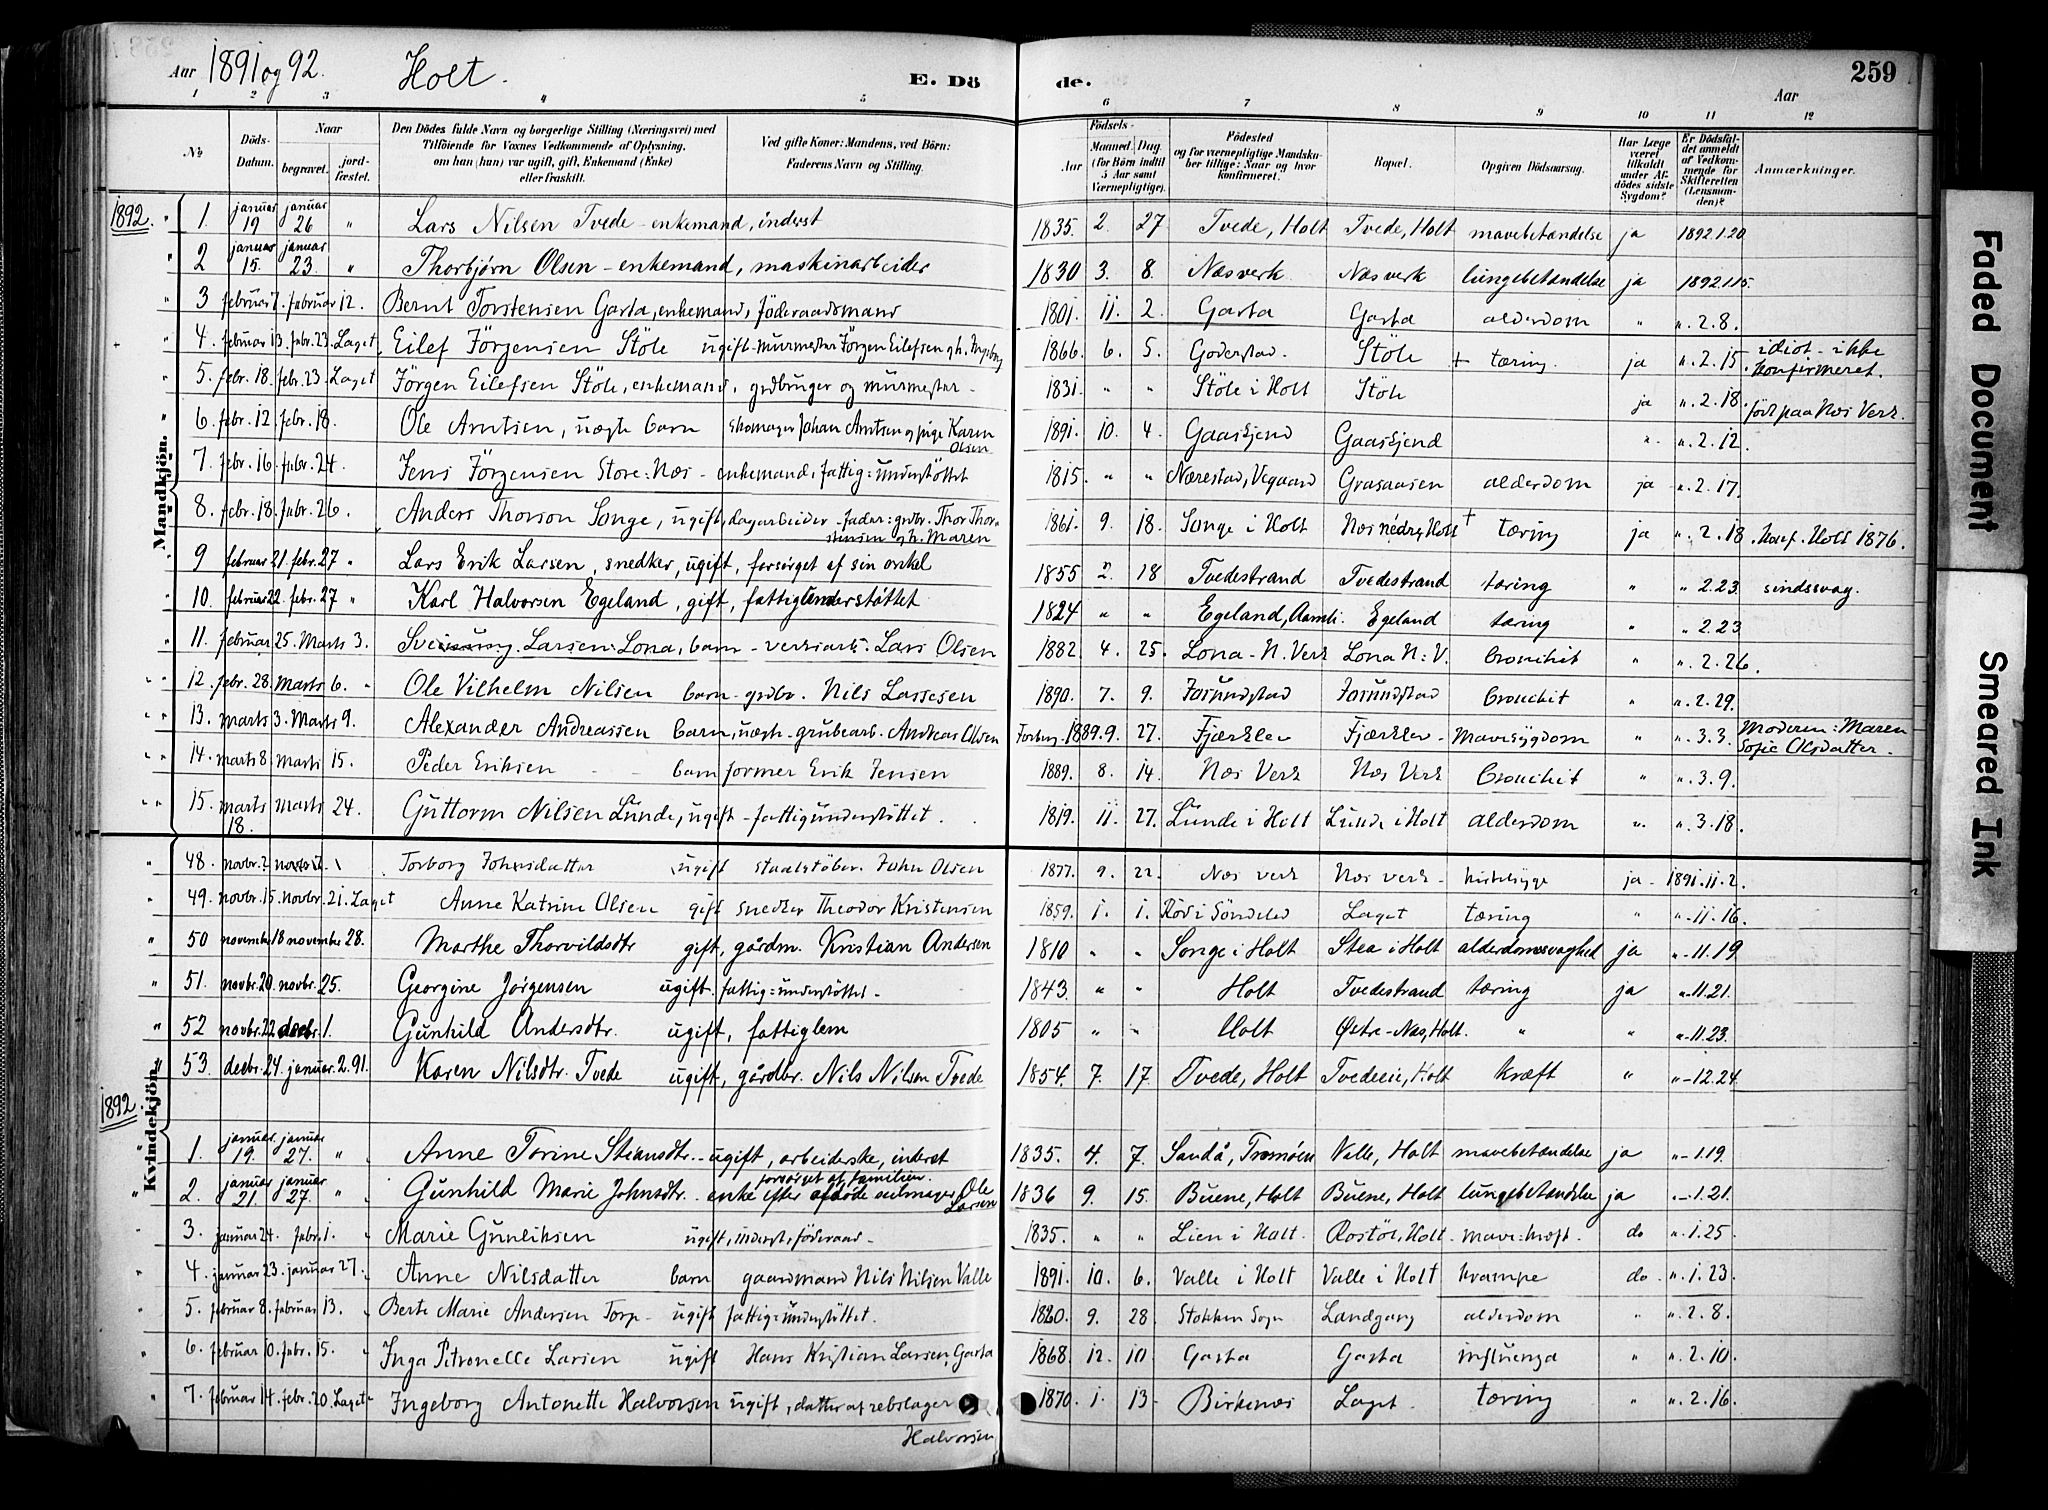 Aar 1891 og 92. Holt. E. Dö de. Aar 259
1 2 3 4 5 6 7 8 9 10 11 12
№ Döds-Datum. Naar begravet. jord-fæstet. Den Dödes fulde Navn og borgerlige Stilling (Næringsvei) med Tilföiende for Voxnes Vedkommende af Oplysning. om han (hun) var ugift, gift, Enkemand (Enke) eller fraskilt. Ved gifte Koner: Mandens, ved Börn: Faderens Navn og Stilling. Födsels- Aar Maaned. Dag. (for Börn indtil 5 Aar samt Værnepligtige). Födested og for værnepligtige Mandskaber tillige: Naar og hvor konfirmeret. Bopæl. Opgiven Dödsaarsag. Har Læge været tilkaldt under Afdödes sidste Sygdom? Er Dödsfaldet anmeldt af Vedkommende for Skifteretten (Lensmanden)? Anmærkninger.
Mandkjön.
1892. " 1. januar 19 januar 26 " Lars Nilsen Tvede - enkemand, inderst 1835. 2. 27 Tvede, Holt Tvede, Holt mavebetændelse ja 1892.1.20
" 2 januar 15. januar 23. " Thorbjørn Olsen - enkemand, maskinarbeider 1830 3. 8. Næsverk Næsverk lungebetændelse ja 1892.1.15.
" 3 februar 7. februar 12. Bernt Torstensen Garta, enkemand, föderaadsmand 1801. 11. 2. Garta Garta alderdom " ". 2. 8.
" 4. februar 13. febr. 23. Laget. Eilef Jörgensen Stöle ugift - murmester Jörgen Eilefsen og h. Ingeborg 1866. 6. 5. Goderstad. Stöle + tæring. ja ". 2. 15. idiot - ikke konfirmeret.
" 5. febr. 18. febr. 23. Laget Jörgen Eilefsen Stöle, enkemand, grdbruger og murmester - 1831. " " Stöle i Holt Stöle ja ". 2. 18.
" 6 febr. 12. febr. 18. Ole Arntsen, uægte barn skomager Johan Arntsen og pige Karen Olsen 1891. 10. 4. Gaaskjend Gaaskjend ". ". 2. 12. født paa Næs Verk.
7. febr. 16. febr. 24. Jens Jörgensen Store-Næs - enkemand, fattig-understöttet 1815. " " Nærestad, Vegaard Grasaasen alderdom ja ". 2. 17.
8. febr. 18. febr. 26. Anders Thorson Songe, ugift, dagarbeider - fader: grdbr. Thor Thorstensen og h. Maren 1861. 9. 18. Songe i Holt Næs nedre, Holt + tæring ja ". 2. 18. Konf. Holt 1876.
" 9 februar 21. febr. 27 " Lars Erik Larsen, snedker, ugift, forsørget af sin onkel 1855 2. 18 Tvedestrand Tvedestrand tæring " ". 2.23. sindssvag.
" 10. februar 22. febr. 27 " Karl Halvorsen Egeland, gift, fattigunderstøttet 1824 " " Egeland, Aamli. Egeland tæring " ". 2.23
" 11. februar 25. Marts 3. Larsen Lona, barn - verksarb. Lars Olsen 1882. 4. 25. Lona - N. Verk Lona N: V. bronchit " ". 2. 26.
" 12. febr. 28. marts 6. " Ole Vilhelm Nilsen barn - grdbr. Nils Lassesen 1890. 7. 9. Fosundstad Fosundstad bronchit " ". 2. 29.
" 13. marts 3. Marts 9. Alexander Andreassen barn, uægte - grubearb. Andreas Olsen 1889. 9. 27. Fjærklev Fjærklev - Mavesygdom " ". 3. 3. Moderen: Maren Sofie Olsdatter -
" 14. marts 8. marts 15. Peder Eriksen - - barn former Erik Jensen 1889. 8. 14. Næs Verk Næs Verk bronchit " ". 3. 9.
" 15. marts 18. marts 24. Guttorm Nilsen Lunde, ugift - fattigunderstöttet. 1819. 11. 27. Lunde i Holt Lunde i Holt alderdom ". ". 3. 18.
Kvindekjön.
" 48. novbr. 2 Torborg Johnsdatter ugift staalstöber. John Olsen 1877. 9. 22. Næs verk Næs verk - ja. 1891. 11. 2.
" 49. novbr. 15. novbr. 21. Laget Anne Katrine Olsen gift snedker Theodor Kristensen 1859. 1. 1. Röd i Söndeled Laget tæring " "- 11. 16.
" 50 november 18 november 28. Marthe Thorvildsdtr gift, gårdm. Kristian Andersen 1810 " " Songe i Holt Stea i Holt alderdomssvaghed ja "- 11.19
" 51. novbr. 20. novbr. 25. Georgine Jørgensen ugift. fattig-understöttet - 1843. " " Holt Tvedestrand tæring ja "- 11.21.
" 52 novbr. 22. decbr. 1. Gunhild Andersdtr. ugift, fattiglem 1805 " " Holt Østre-Næs, Holt. " " "- 11.23.
" 53. decbr. 24. januar. 2.91. Karen Nilsdtr. Tvede ugift, gårdbr. Nils Nilsen Tvede 1854. 7. 17. Tvede, Holt Tvedeeie, Holt kræft " "- 12.24.
1892.
1. januar. 19. januar 27. " Anne Torine Steansdtr. - ugift, arbeiderske, inderst 1835. 4. 7. Sandå, Tromøen Valle, Holt mavebetændelse ja "- 1.19.
" 2. januar 21. januar 27. " Gunhild Marie Johnsdtr. forsørget af familien. enke efter afdøde seilmager Ole Larsen 1836 9. 15. Buene, Holt Buene, Holt lungebetændelse ja "- 1.21.
" 3. januar 24. febr. 1. " Marie Gunliksen ugift, inderst, föderaad - 1835. " " Lien i Holt. Rostöl, Holt mave-kræft. do ". 1. 25.
" 4. januar 23. januar 27. " Anne Nilsdatter barn gaardmand Nils Nilsen Valle 1891. 10. 6. Valle i Holt Valle i Holt krampe do. ". 1. 23.
" 5. februar 8. februar 13. " Berte Marie Andersen Torp - ugift fattig-understöttet. 1820. 9. 28 Stokken Sogn Landgang alderdom " ". 2. 8.
" 6. februar 10. febr. 15. " Inga Petronelle Larsen ugift Hans Kristian Larsen, Garta 1868. 12. 10 Garta Garta influenza " ". 2. 10
" 7. februar 14. febr. 20. Laget - Ingeborg Antonette Halvorsen ugift, datter af rebslager Halvorsen 1870. 1. 13. Birkenæs Laget. tæring " ". 2. 16.
Faded Document
Smeared Ink